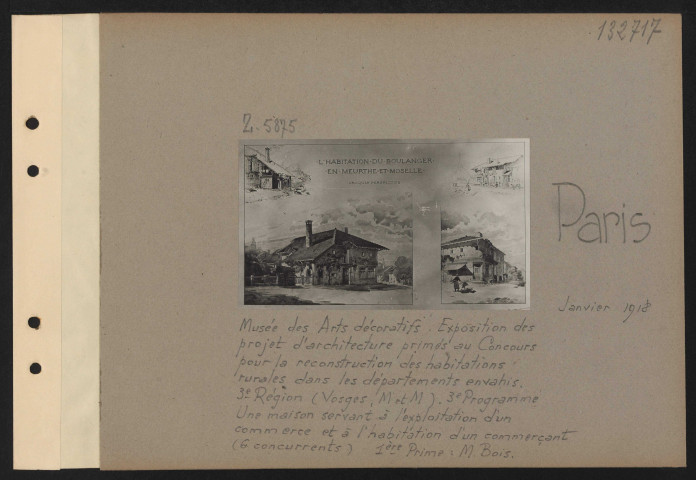 132717
Z. 5875
L'HABITATION DU BOULANGER
EN MEURTHE ET MOSELLE
Paris
Janvier 1918
Musée des Arts décoratifs. Exposition des
projet d'architecture primés au Concours
pour la reconstruction des habitations
rurales dans les départements envahis.
3e Région (Vosges, M et M). 3e Programme
Une maison servant à l'exploitation d'un
commerce et à l'habitation d'un commerçant
(6 concurrents) - 1ère Prime : M. Bois.